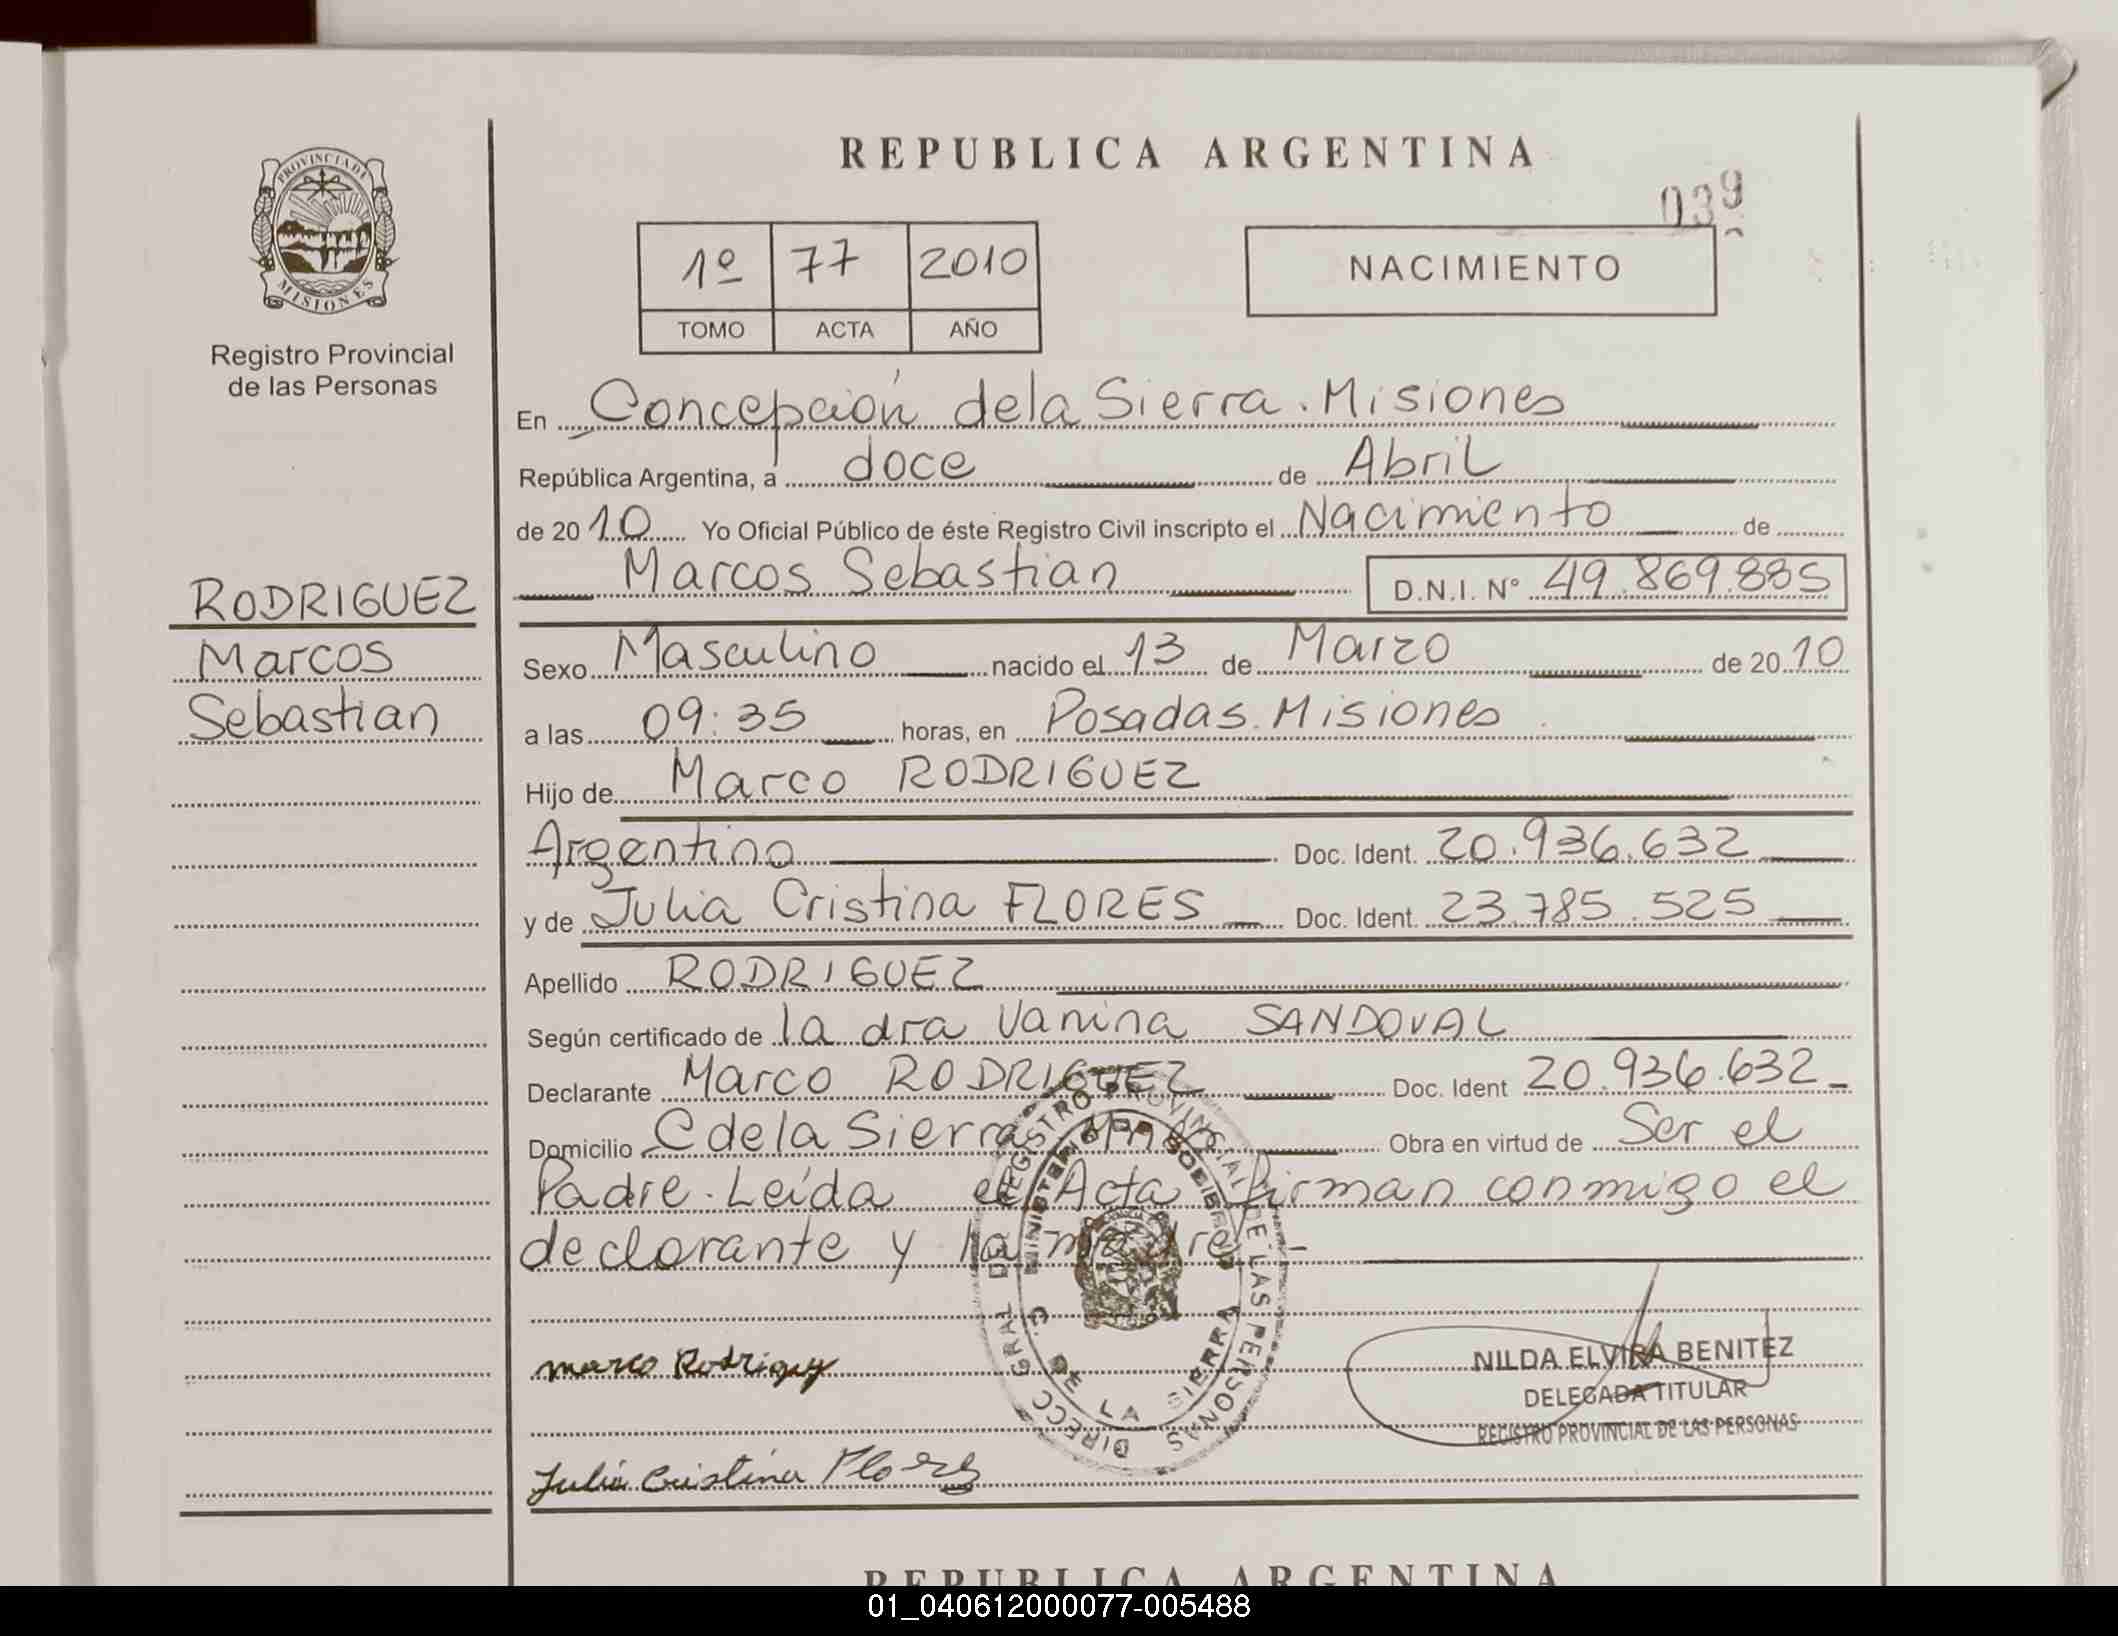 REPUBLICA ARGENTINA
039
PROVINCIA DE
MISIONES
Registro Provincial
de las Personas
1º 77 2010
TOMO ACTA AÑO
NACIMIENTO
En Concepción dela Sierra. Misiones
República Argentina, a doce de Abril
de 2010 Yo Oficial Público de éste Registro Civil inscripto el Nacimiento de
Marcos Sebastian D.N.I. Nº 49.869.885
RODRIGUEZ
Marcos
Sebastian
Sexo Masculino nacido el 13 de Marzo de 2010
a las 09:35 horas, en Posadas. Misiones
Hijo de Marco RODRIGUEZ
Argentino Doc. Ident. 20.936.632
y de Julia Cristina FLORES Doc. Ident. 23.785.525
Apellido RODRIGUEZ
Según certificado de la dra Vanina SANDOVAL
Declarante Marco RODRIGUEZ Doc. Ident 20.936.632
Domicilio C dela Sierra Mnes Obra en virtud de Ser el
Padre. Leída el Acta firman conmigo el
declarante y la madre. -
DIRECC GRAL DEL REGISTRO PROVINCIAL DE LAS PERSONAS
MINISTERIO DE GOBIERNO
C. DE LA SIERRA
Marco Rodriguez
Julia Cristina Flores
NILDA ELVIRA BENITEZ
DELEGADA TITULAR
REGISTRO PROVINCIAL DE LAS PERSONAS
REPUBLICA ARGENTINA
01_040612000077-005488